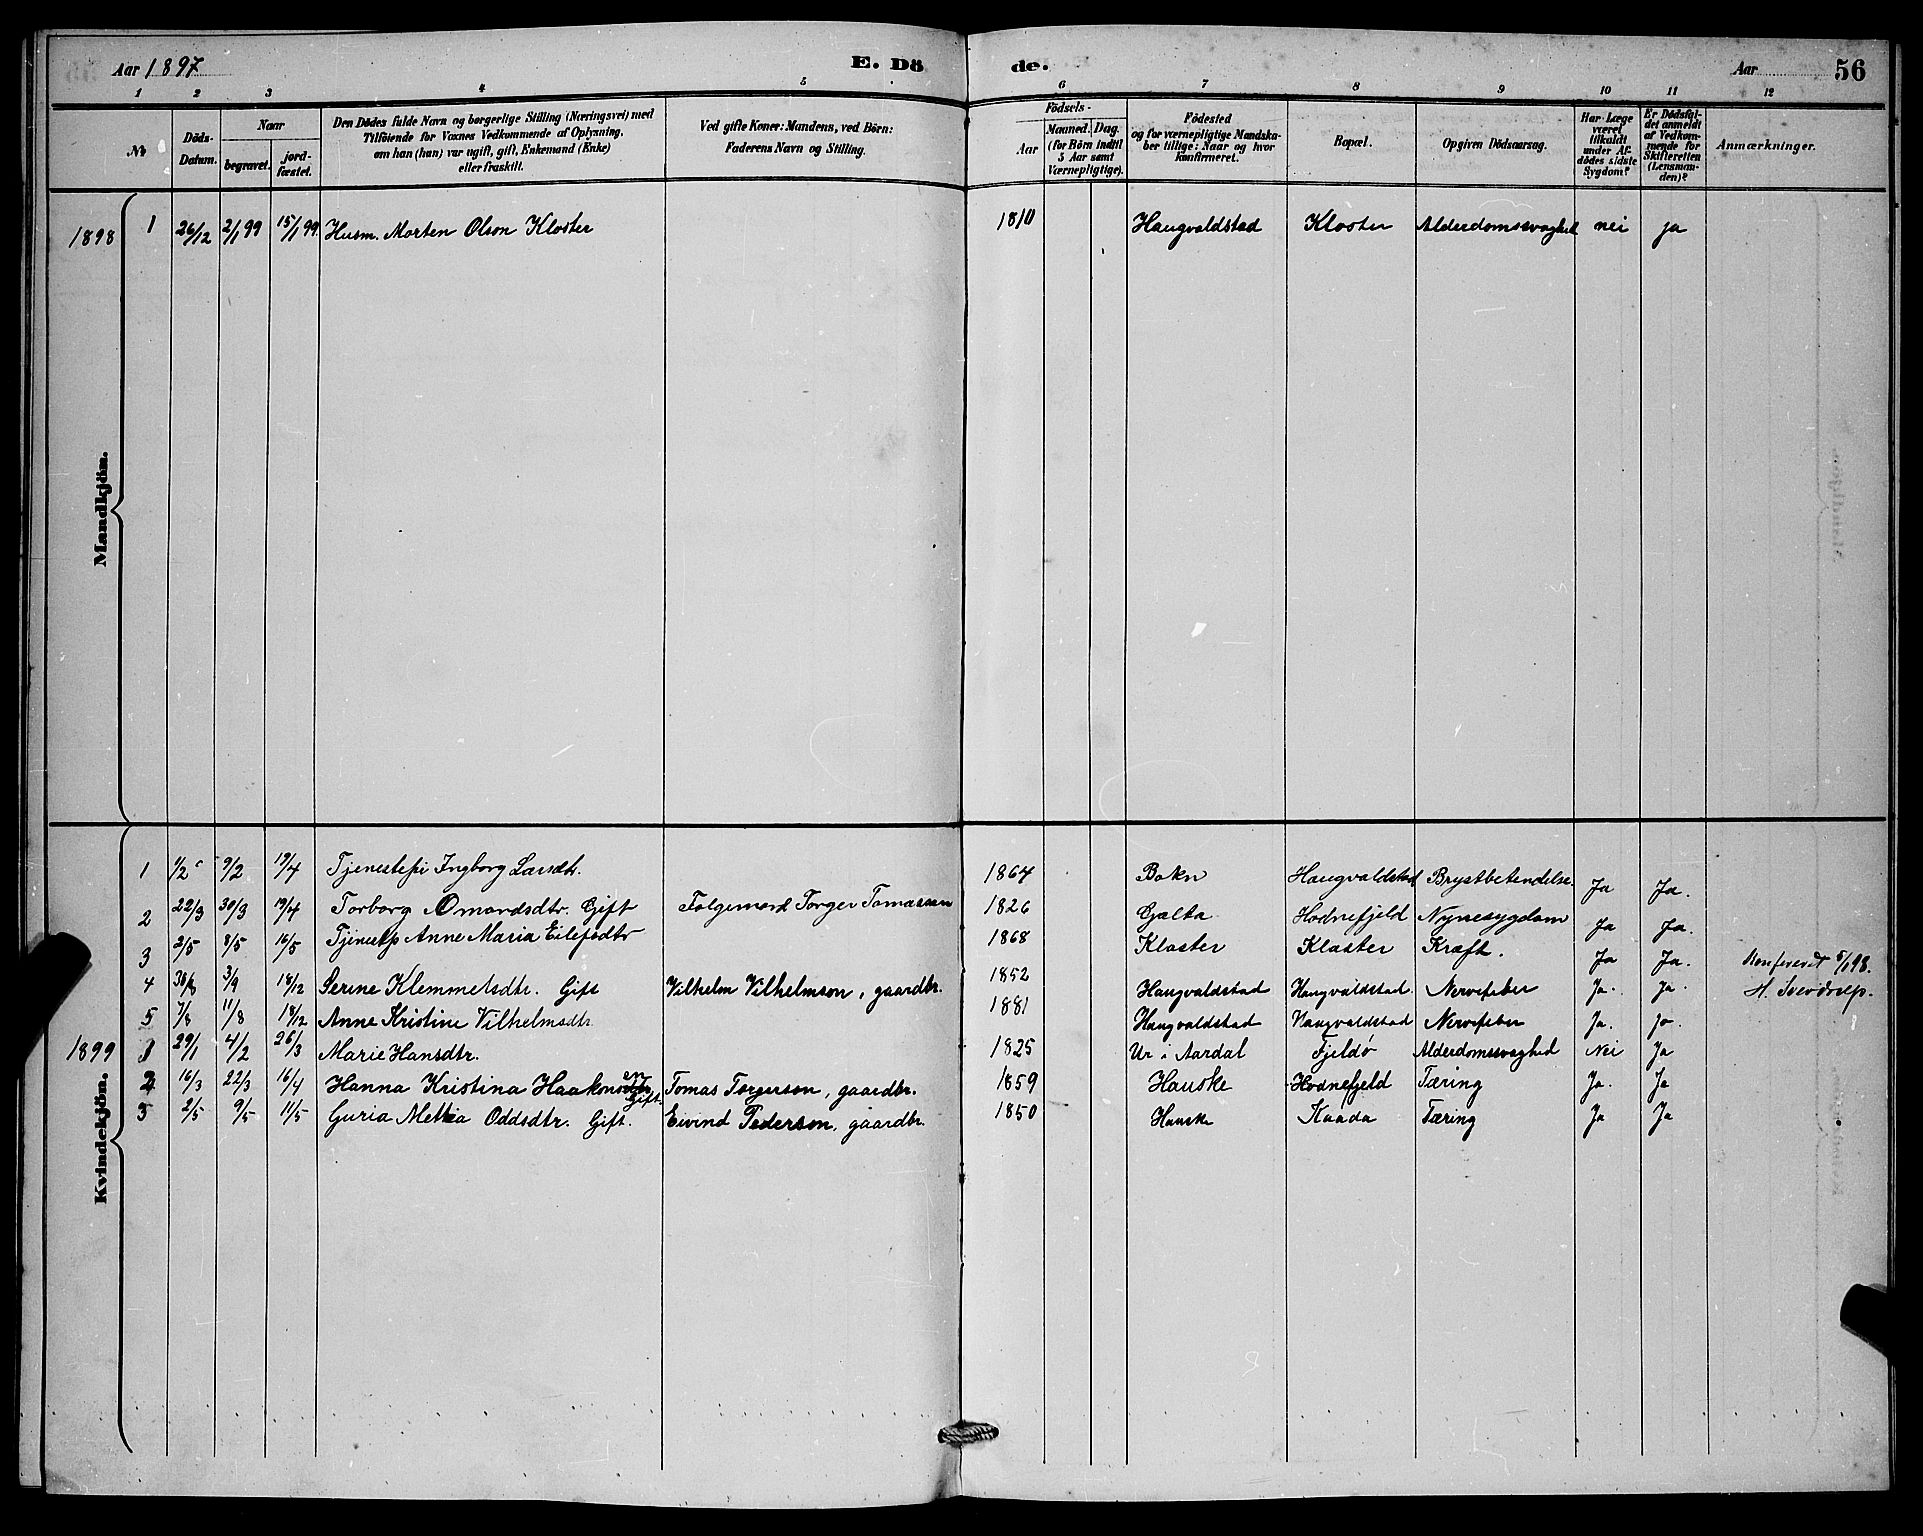 Aar 1897
E. Dö
de.
Aar
56
1 2 3 4 5 6 7 8 9 10 11 12
No
Döds-Datum.
Naar
begravet. jord-fæstet.
Den Dödes fulde Navn og borgerlige Stilling (Næringsvei) med
Tilföiende for Voxnes Vedkommende af Oplysning,
om han (hun) var ugift, gift, Enkemand (Enke)
eller fraskilt.
Ved gifte Koner: Mandens, ved Börn:
Faderens Navn og Stilling.
Födsels-
Aar
Maaned. Dag.
(for Börn indtil
5 Aar samt
Værnepligtige).
Födested
og for værnepligtige Mandska-
ber tillige: Naar og hvor
konfirmeret.
Bopæl.
Opgiven Dödsaarsag.
Har Læge
været
tilkaldt
under Af-
dödes sidste
Sygdom?
Er Dödsfal-
det anmeldt
af Vedkom-
mende for
Skifteretten
(Lensman-
den)?
Anmærkninger.
Mandkjön.
1898 1 26/12 2/1 99 15/1 99 Husm. Morten Olson Kloster 1810 Haugvaldstad Kloster Alderdomssvaghed nei ja
Kvindekjön.
1 1/2 9/2 19/4 Tjenestepi Ingborg Larsdtr. 1864 Bokn Haugvaldstad Brystbetendelse. Ja Ja.
2 22/3 30/3 19/4 Torborg Omundsdtr. Gift Folgemand Torger Tomassen 1826 Gjalta Hodnefjeld Nyresygdom Ja Ja.
3 2/5 8/5 16/5 Tjenestp Anne Maria Eilefsdtr 1868 Kloster Kloster Kræft. Ja Ja. Konfereret 5/1 98.
4 30/8 3/9 18/12 Serine Klemmetsdtr. Gift Vilhelm Vilhelmson, gaardbr. 1852 Haugvaldstad Haugvaldstad. Nervefeber Ja. ja. H. Sverdrup.
5 7/8 11/8 18/12 Anne Kristine Vilhelmsdtr. 1881 Haugvaldstad Haugvaldstad Nervefeber Ja. ja.
1899 1 29/1 4/2 26/3 Marie Hansdtr. 1825 Ur i Aardal Fjeldö Alderdomssvaghed Nei Ja
2 16/3 22/3 16/4 Hanna Kristina Haakonsdtr Gift. Tomas Torgerson, gaardbr. 1859 Hauske Hodnefjeld Tæring Ja. Ja
3 2/5 9/5 11/5 Guria Metta Oddsdtr. Gift. Eivind Pederson, gaardbr. 1850 Hauske Kaada Tæring Ja Ja